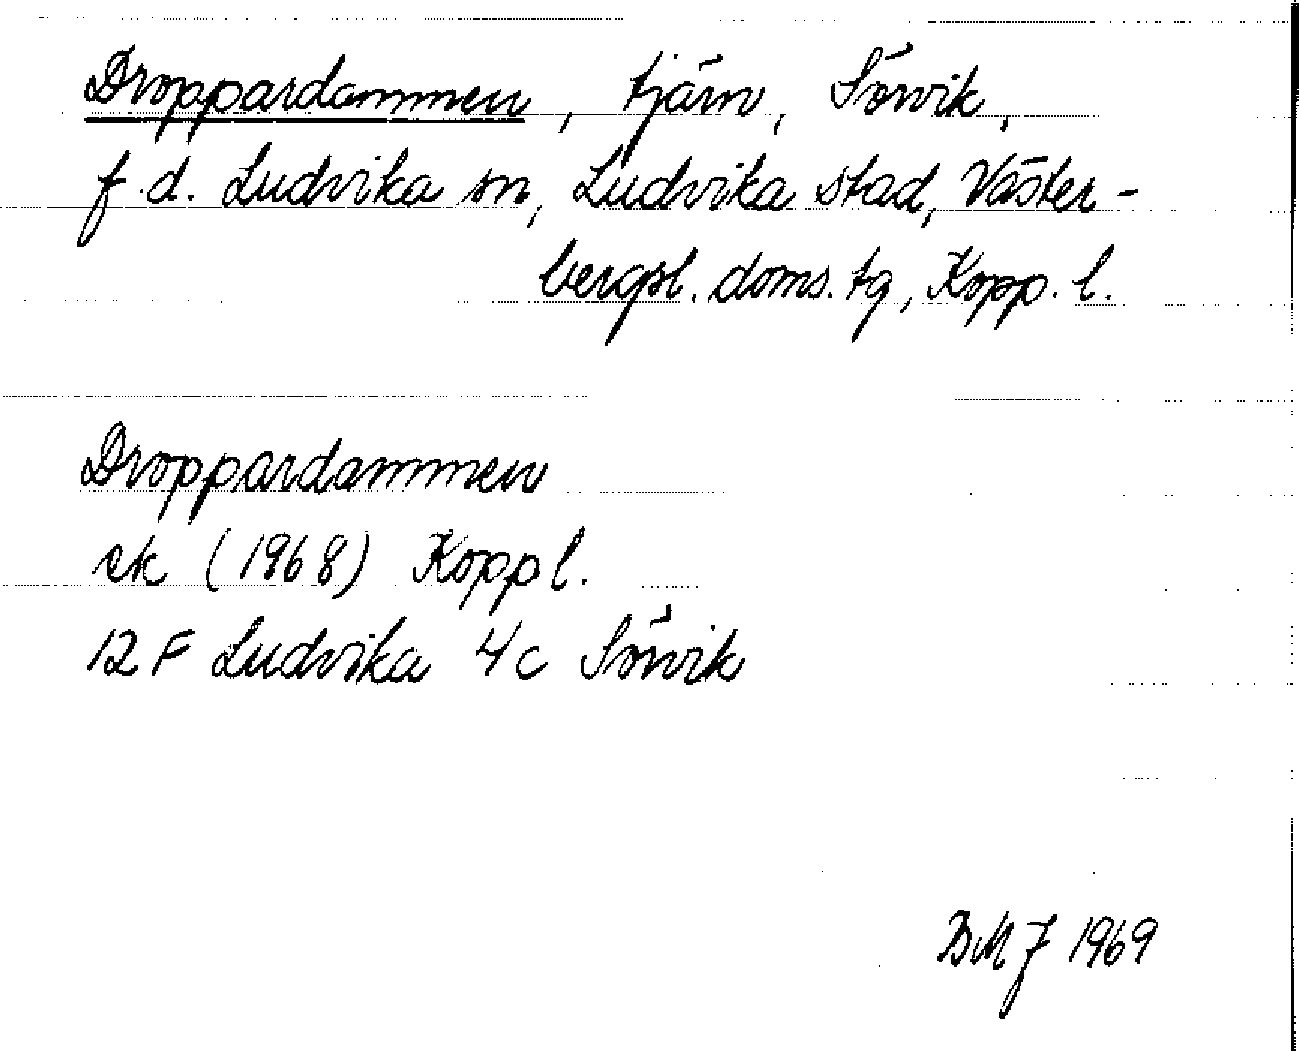 Droppardammen, tjärn, Sörvik,
f.d. Ludvika sn, Ludvika stad, Väster-
bergsl. doms. tg, Kopp. l.
Droppardammen
ek (1968) Kopp l.
12 F Ludvika 4 c Sörvik
BMJ 1969